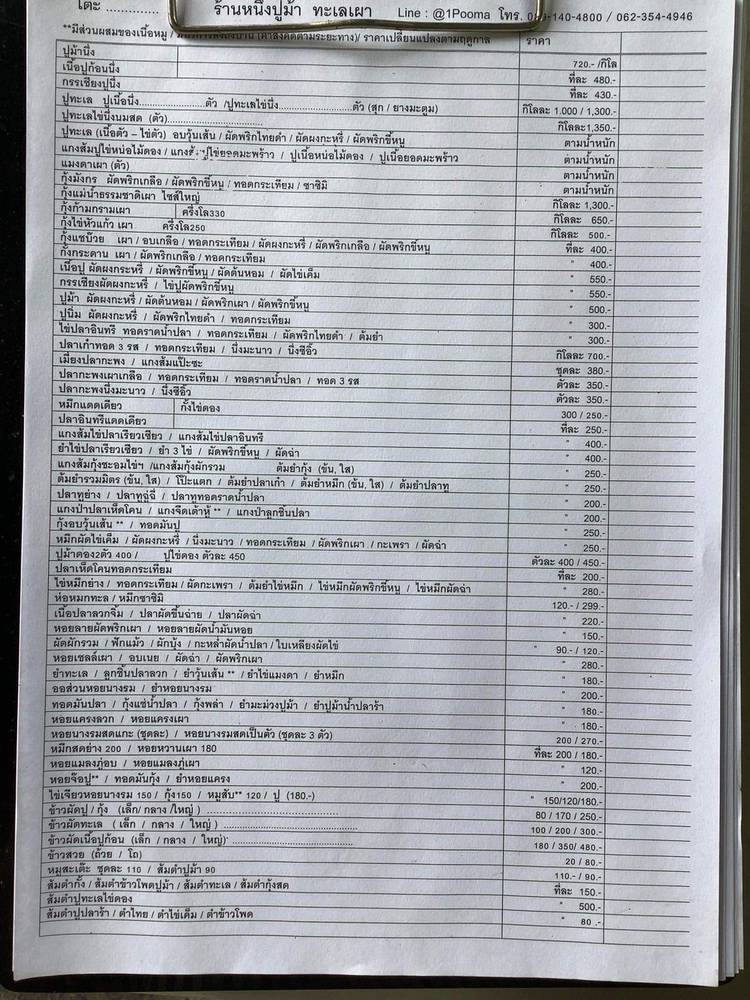 โต๊ะ ............... ร้านหนึ่งปูม้า ทะเลเผา Line : @1Pooma โทร. 140-4800 / 062-354-4946
**มีส่วนผสมของเนื้อหมู / (ค่าส่งคิดตามระยะทาง)/ ราคาเปลี่ยนแปลงตามฤดูกาล ราคา
ปูม้านึ่ง 720.- /กิโล
เนื้อปูก้อนนึ่ง ที่ละ 480.-
กรรเชียงปูนึ่ง ที่ละ 430.-
ปูทะเล ปูเนื้อนึ่ง......................ตัว /ปูทะเลไข่นึ่ง.......................ตัว (สุก / ยางมะตูม) กิโลละ 1.000 / 1,300.-
ปูทะเลไข่นึ่งนมสด (ตัว)............................... กิโลละ1,350.-
ปูทะเล (เนื้อตัว – ไข่ตัว) อบวุ้นเส้น / ผัดพริกไทยดำ / ผัดผงกะหรี่ / ผัดพริกขี้หนู ตามน้ำหนัก
แกงส้มปูไข่หน่อไม้ดอง / แกงส้มปูไข่ยอดมะพร้าว / ปูเนื้อหน่อไม้ดอง / ปูเนื้อยอดมะพร้าว ตามน้ำหนัก
แมงดาเผา (ตัว) ตามน้ำหนัก
กุ้งมังกร ผัดพริกเกลือ / ผัดพริกขี้หนู / ทอดกระเทียม / ซาชิมิ ตามน้ำหนัก
กุ้งแม่น้ำธรรมชาติเผา ไซส์ใหญ่ กิโลละ 1,300.-
กุ้งก้ามกรามเผา ครึ่งโล330 กิโลละ 650.-
กุ้งไข่หัวแก้ว เผา ครึ่งโล250 กิโลละ 500.-
กุ้งแชบ๊วย เผา / อบเกลือ / ทอดกระเทียม / ผัดผงกะหรี่ / ผัดพริกเกลือ / ผัดพริกขี้หนู ที่ละ 400.-
กั้งกระดาน เผา / ผัดพริกเกลือ / ทอดกระเทียม " 400.-
เนื้อปู ผัดผงกระหรี่ / ผัดพริกขี้หนู / ผัดต้นหอม / ผัดไข่เค็ม " 550.-
กรรเชียงผัดผงกะหรี่ / ไข่ปูผัดพริกขี้หนู " 550.-
ปูม้า ผัดผงกะหรี่ / ผัดต้นหอม / ผัดพริกเผา / ผัดพริกขี้หนู " 500.-
ปูนิ่ม ผัดผงกะหรี่ / ผัดพริกไทยดำ / ทอดกระเทียม " 300.-
ไข่ปลาอินทรี ทอดราดน้ำปลา / ทอดกระเทียม / ผัดพริกไทยดำ / ต้มยำ " 300.-
ปลาเก๋าทอด 3 รส / ทอดกระเทียม / นึ่งมะนาว / นึ่งซีอิ๊ว กิโลละ 700.-
เมี่ยงปลากะพง / แกงส้มแป๊ะซะ ชุดละ 380.-
ปลากะพงเผาเกลือ / ทอดกระเทียม / ทอดราดน้ำปลา / ทอด 3 รส ตัวละ 350.-
ปลากะพงนึ่งมะนาว / นึ่งซีอิ๊ว ตัวละ 350.-
หมึกแดดเดียว กั้งไข่ดอง 300 / 250.-
ปลาอินทรีแดดเดียว ที่ละ 250.-
แกงส้มไข่ปลาเรียวเซียว / แกงส้มไข่ปลาอินทรี " 400.-
ยำไข่ปลาเรียวเซียว / ยำ 3 ไข่ / ผัดพริกขี้หนู / ผัดฉ่า " 400.-
แกงส้มกุ้งชะอมไข่ฯ /แกงส้มกุ้งผักรวม ต้มยำกุ้ง (ข้น, ใส) " 250.-
ต้มยำรวมมิตร (ข้น, ใส) / โป๊ะแตก / ต้มยำปลาเก๋า / ต้มยำหมึก (ข้น, ใส) / ต้มยำปลาทู " 250.-
ปลาทูย่าง / ปลาทูฉู่ฉี่ / ปลาทูทอดราดน้ำปลา " 200.-
แกงป่าปลาเห็ดโคน / แกงจืดเต้าหู้ ** / แกงป่าลูกชิ้นปลา " 200.-
กุ้งอบวุ้นเส้น ** / ทอดมันปู " 250.-
หมึกผัดไข่เค็ม / ผัดผงกะหรี่ / นึ่งมะนาว / ทอดกระเทียม / ผัดพริกเผา / กะเพรา / ผัดฉ่า " 250.-
ปูม้าดอง2ตัว 400 / ปูไข่ดอง ตัวละ 450 ตัวละ 400 / 450.-
ปลาเห็ดโคนทอดกระเทียม ที่ละ 200.-
ไข่หมึกย่าง / ทอดกระเทียม / ผัดกะเพรา / ต้มยำไข่หมึก / ไข่หมึกผัดพริกขี้หนู / ไข่หมึกผัดฉ่า " 280.-
ห่อหมกทะเล / หมึกซาชิมิ 120.- / 299.-
เนื้อปลาลวกจิ้ม / ปลาผัดขึ้นฉ่าย / ปลาผัดฉ่า " 220.-
หอยลายผัดพริกเผา / หอยลายผัดน้ำมันหอย " 150.-
ผัดผักรวม / ฟักแม้ว / ผักบุ้ง / กะหล่ำผัดน้ำปลา / ใบเหลียงผัดไข่ " 90.- / 120.-
หอยเชลล์เผา / อบเนย / ผัดฉ่า / ผัดพริกเผา " 280.-
ยำทะเล / ลูกชิ้นปลาลวก / ยำวุ้นเส้น ** / ยำไข่แมงดา / ยำหมึก " 180.-
ออส่วนหอยนางรม / ยำหอยนางรม " 200.-
ทอดมันปลา / กุ้งแช่น้ำปลา / กุ้งพล่า / ยำมะม่วงปูม้า / ยำปูม้าน้ำปลาร้า " 180.-
หอยแครงลวก / หอยแครงเผา " 180.-
หอยนางรมสดแกะ (ชุดละ) / หอยนางรมสดเป็นตัว (ชุดละ 3 ตัว) 200 / 270.-
หมึกสดย่าง 200 / หอยหวานเผา 180 ที่ละ 200 / 180.-
หอยแมลงภู่อบ / หอยแมลงภู่เผา " 120.-
หอยจ๊อปู** / ทอดมันกุ้ง / ยำหอยแครง " 200.-
ไข่เจียวหอยนางรม 150 / กุ้ง150 / หมูสับ** 120 / ปู (180.-) " 150/120/180.-
ข้าวผัดปู / กุ้ง (เล็ก/ กลาง /ใหญ่ ) ................................ 80 / 170 / 250.-
ข้าวผัดทะเล ( เล็ก / กลาง / ใหญ่ ) ................................ 100 / 200 / 300.-
ข้าวผัดเนื้อปูก้อน (เล็ก / กลาง / ใหญ่) ................................ 180 / 350/ 480.-
ข้าวสวย (ถ้วย / โถ) 20 / 80.-
หมูสะเต๊ะ ชุดละ 110 / ส้มตำปูม้า 90 110.- / 90.-
ส้มตำกั้ง / ส้มตำข้าวโพดปูม้า / ส้มตำทะเล / ส้มตำกุ้งสด ที่ละ 150.-
ส้มตำปูทะเลไข่ดอง " 500.-
ส้มตำปูปลาร้า / ตำไทย / ตำไข่เค็ม / ตำข้าวโพด " 80 .-